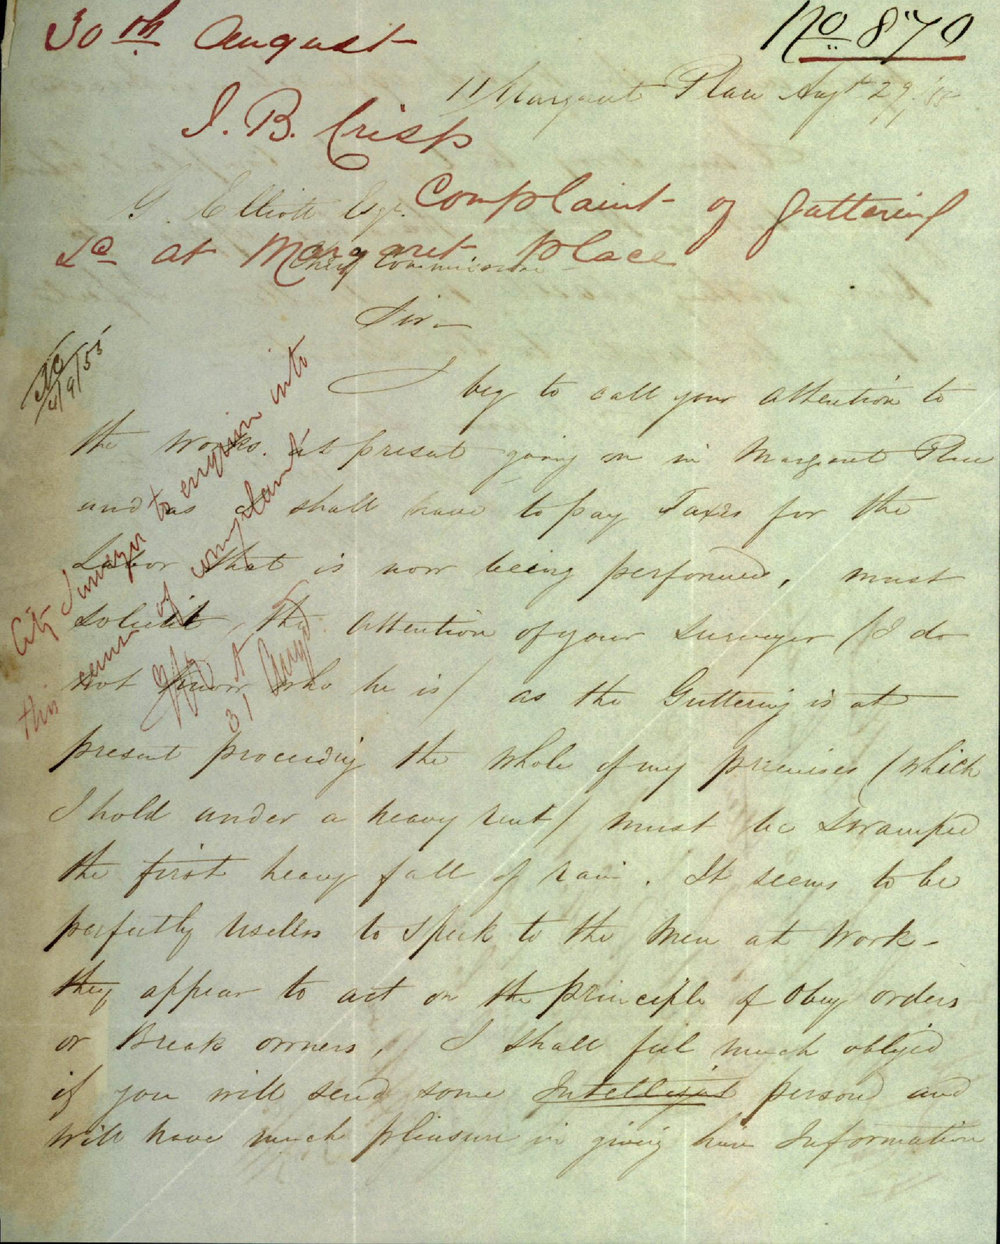 30th August
No 870
11 Margaret Place Augt 29/55
J. B. Crisp
G. Elliott Esqr.
Complaint of guttering
&c at Margaret place
Chief Commissioner
Sir
4/9/55
I beg to call your attention to
the Works at present going on in Margaret Place
and as I shall have to pay Taxes for the
Labor that is now being performed, must
solicit, the attention of your Surveyor (I do
not know who he is) as the Guttering is at
present proceeding the whole of my premises (which
I hold under a heavy rent) must be Swamped
the first heavy fall of rain. It seems to be
perfectly useless to speek to the Men at Work –
they appear to act on the principle of Obey orders
or Break owners. I shall feel much obliged
if you will send some Intelligent person and
will have much pleasure in giving him Information
City Surveyor to enquire into
this cause of complaint
31 Augt